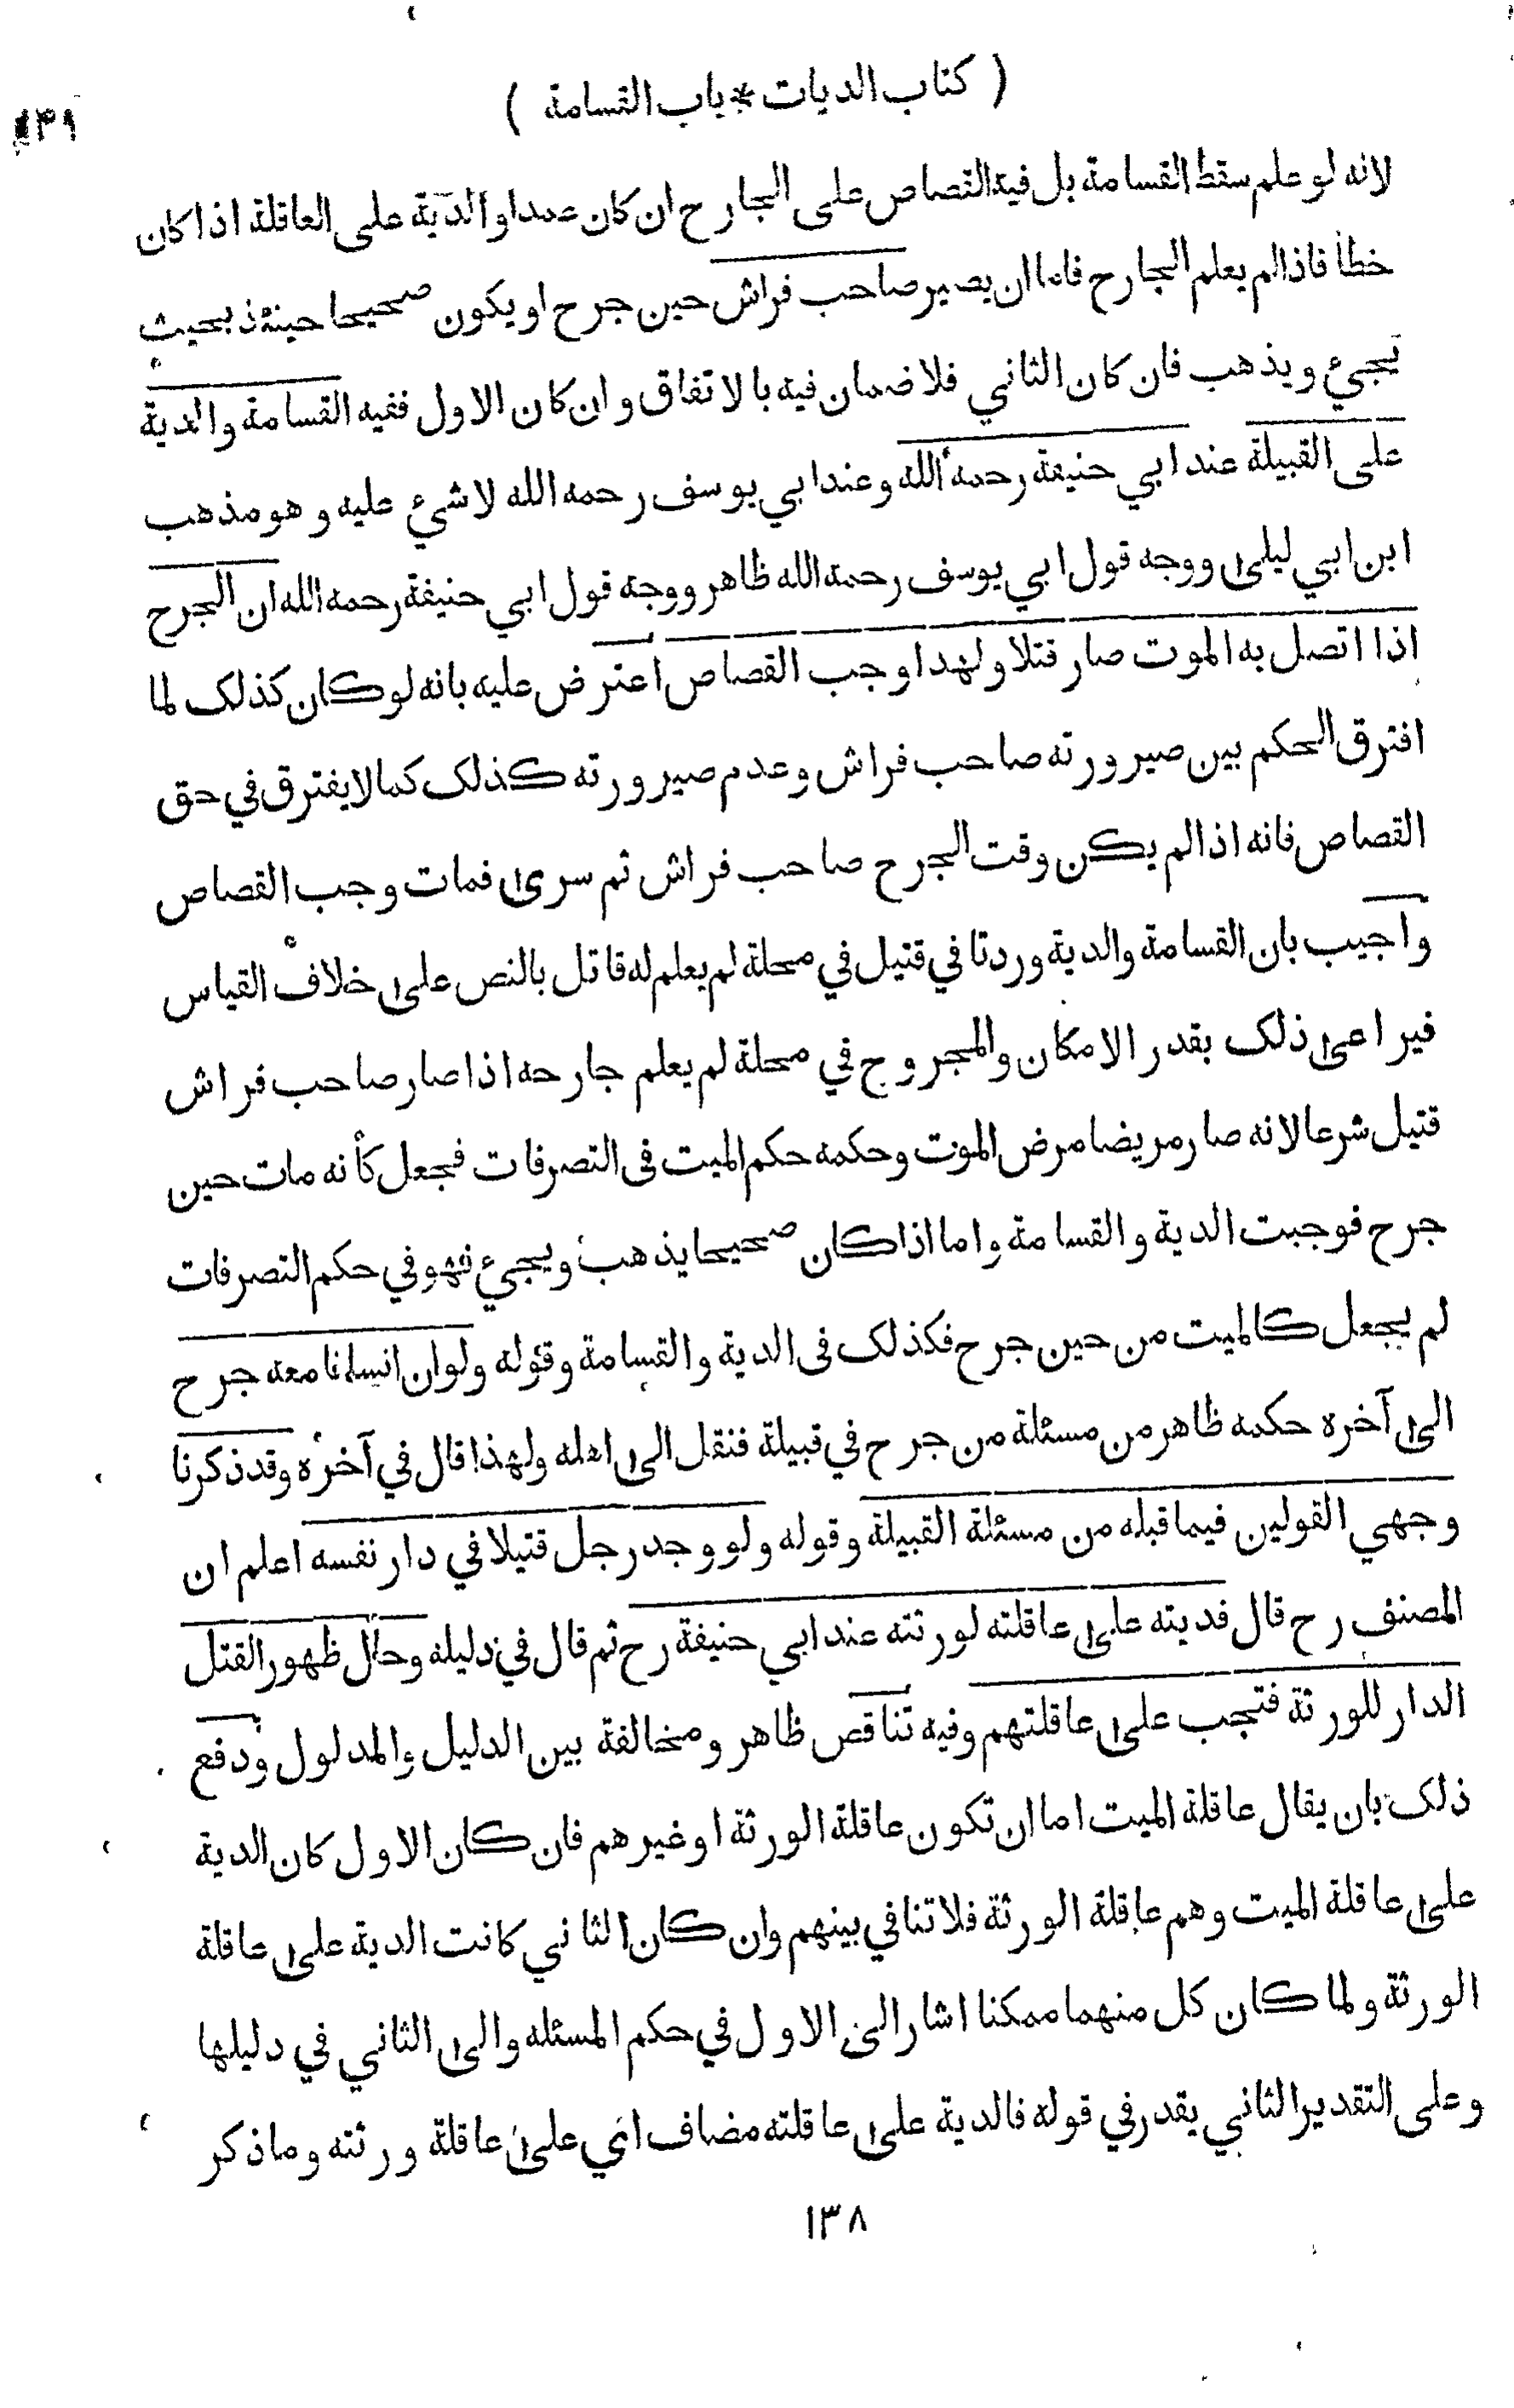 ( كتاب الديات * باب القسامة )
لانه لو علم سقط القسامة بل فيه القصاص على الجارح ان كان عمدا والدية على العاقلة اذا كان
خطأ فاذا لم يعلم الجارح فاما ان يصير صاحب فراش حين جرح او يكون صحيحا حينئذ بحيث
يجيء ويذهب فان كان الثاني فلا ضمان فيه بالاتفاق وان كان الاول ففيه القسامة والدية
على القبيلة عند ابي حنيفة رحمه الله وعند ابي يوسف رحمه الله لا شيء عليه وهو مذهب
ابن ابي ليلى ووجه قول ابي يوسف رحمه الله ظاهر ووجه قول ابي حنيفة رحمه الله ان الجرح
اذا اتصل به الموت صار قتلا ولهذا وجب القصاص اعترض عليه بانه لو كان كذلك لما
افترق الحكم بين صيرورته صاحب فراش وعدم صيرورته كذلك كما لا يفترق في حق
القصاص فانه اذا لم يكن وقت الجرح صاحب فراش ثم سرى فمات وجب القصاص
واجيب بان القسامة والدية وردتا في قتيل في محلة لم يعلم له قاتل بالنص على خلاف القياس
فيراعى ذلك بقدر الامكان والمجروح في محلة لم يعلم جارحه اذا صار صاحب فراش
قتيل شرعا لانه صار مريضا مرض الموت وحكمه حكم الميت فى التصرفات فجعل كأنه مات حين
جرح فوجبت الدية والقسامة واما اذا كان صحيحا يذهب ويجيء فهو في حكم التصرفات
لم يجعل كالميت من حين جرح فكذلك فى الدية والقسامة وقوله ولو ان انسانا معه جرح
الى آخره حكمه ظاهر من مسئلة من جرح في قبيلة فنقل الى اهله ولهذا قال في آخره وقد ذكرنا
وجهي القولين فيما قبله من مسئلة القبيلة وقوله ولو وجد رجل قتيلا في دار نفسه اعلم ان
المصنف رح قال فديته على عاقلته لورثته عند ابي حنيفة رح ثم قال في دليله وحال ظهور القتل
الدار للورثة فتجب على عاقلتهم وفيه تناقص ظاهر ومخالفة بين الدليل والمدلول ودفع
ذلك بان يقال عاقلة الميت اما ان تكون عاقلة الورثة او غيرهم فان كان الاول كان الدية
على عاقلة الميت وهم عاقلة الورثة فلا تنافي بينهم وان كان الثاني كانت الدية على عاقلة
الورثة ولما كان كل منهما ممكنا اشار الى الاول في حكم المسئله والى الثاني في دليلها
وعلى التقدير الثاني يقدر في قوله فالدية على عاقلته مضاف اي على عاقلة ورثته وما ذكر
١٣٨